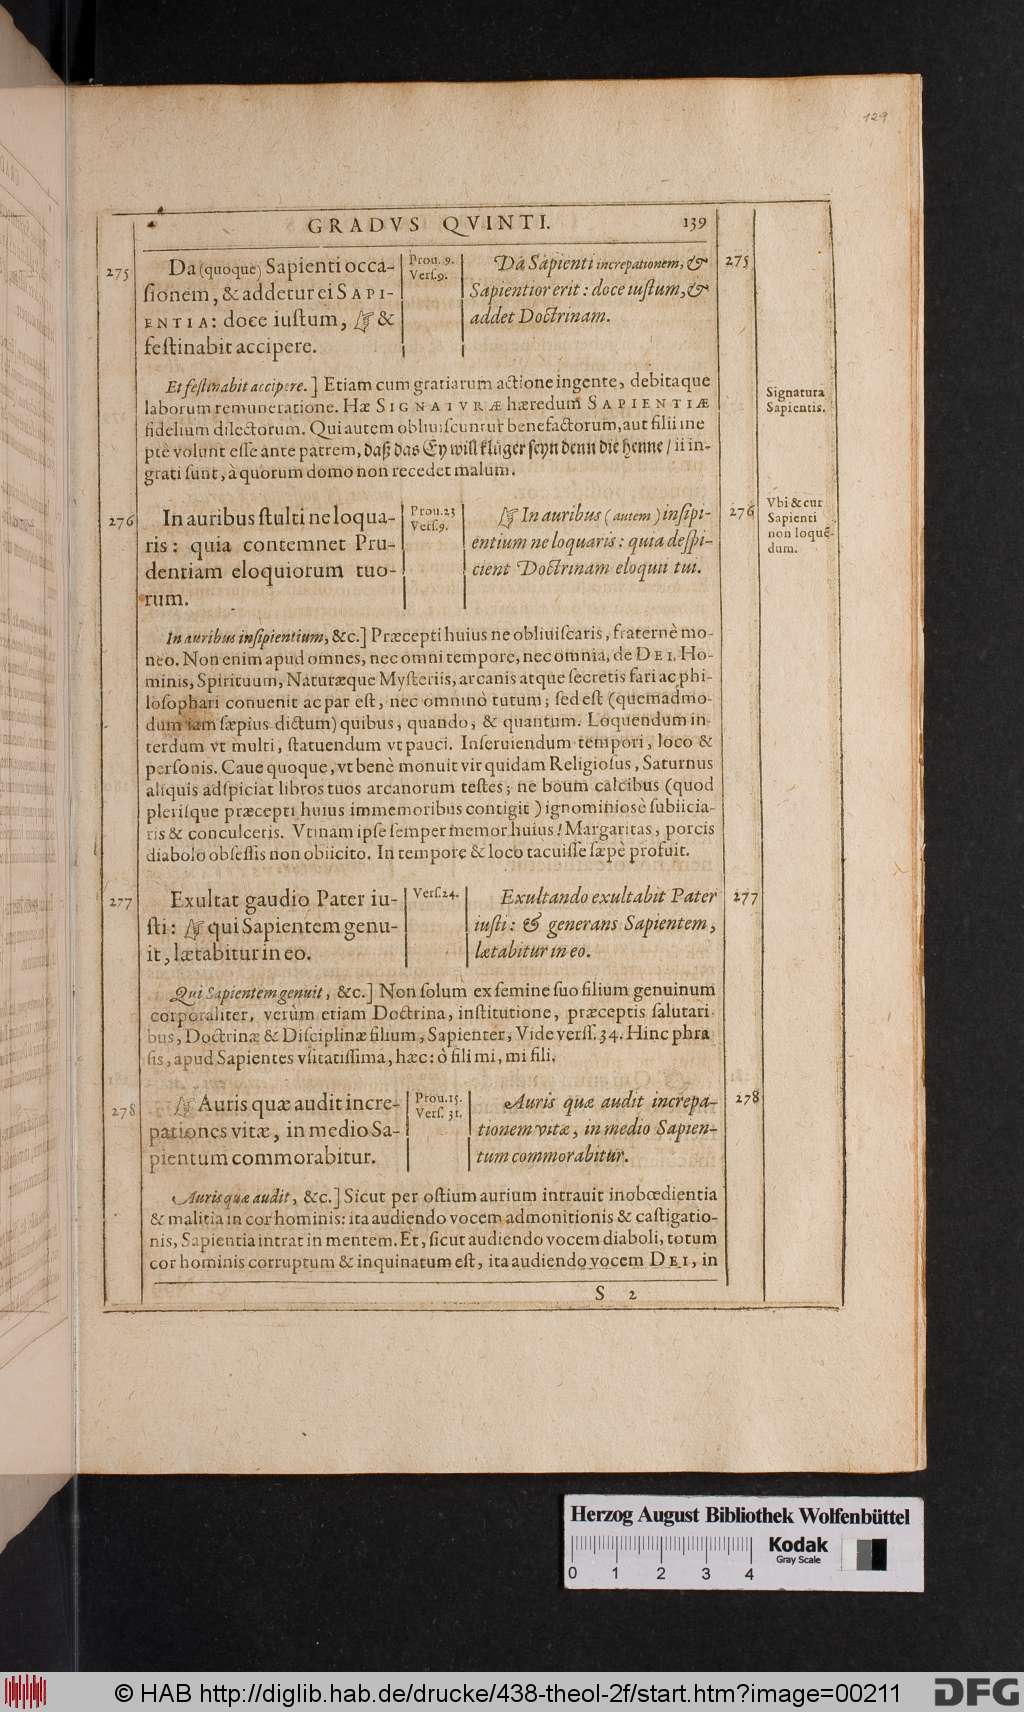 129
GRADVS QVINTI. 139
275
Da (quoque) Sapienti occa-
ſionem, & addetur ei SAPI-
ENTIA: doce iuſtum, ☞ &
feſtinabit accipere.
Prou. 9.
Verſ. 9.
Da Sapienti increpationem, &
Sapientior erit: doce iuſtum, &
addet Doctrinam.
275
Et feſtinabit accipere.] Etiam cum gratiarum actione ingente, debitaque
laborum remuneratione. Hæ SIGNATVRÆ hæredum SAPIENTIÆ
fidelium dilectorum. Qui autem obliuiſcuntur benefactorum, aut filii ine
ptè volunt eſſe ante patrem, daß das Ey will klüger ſeyn denn die henne / ii in-
grati ſunt, à quorum domo non recedet malum.
Signatura
Sapientis.
276
In auribus ſtulti ne loqua-
ris: quia contemnet Pru-
dentiam eloquiorum tuo-
rum.
Prou. 23
Verſ. 9.
☞ In auribus (autem) inſipi-
entium ne loquaris: quia deſpi-
cient Doctrinam eloquii tui.
276
Vbi & cur
Sapienti
non loquē-
dum.
In auribus inſipientium, &c.] Præcepti huius ne obliuiſcaris, fraternè mo-
neo. Non enim apud omnes, nec omni tempore, nec omnia, de DEI, Ho-
minis, Spirituum, Naturæque Myſteriis, arcanis atque ſecretis fari ac phi-
loſophari conuenit ac par eſt, nec omnino tutum; ſed eſt (quemadmo-
dum iam ſæpius dictum) quibus, quando, & quantum. Loquendum in
terdum vt multi, ſtatuendum vt pauci. Inſeruiendum tempori, loco &
perſonis. Caue quoque, vt benè monuit vir quidam Religioſus, Saturnus
aliquis adſpiciat libros tuos arcanorum teſtes; ne boum calcibus (quod
pleriſque præcepti huius immemoribus contigit) ignominiosè ſubiicia-
ris & conculceris. Vtinam ipſe ſemper memor huius! Margaritas, porcis
diabolo obſeſſis non obiicito. In tempore & loco tacuiſſe ſæpè profuit.
277
Exultat gaudio Pater iu-
ſti: ☞ qui Sapientem genu-
it, lætabitur in eo.
Verſ. 24.
Exultando exultabit Pater
iuſti: & generans Sapientem,
lætabitur in eo.
277
Qui Sapientem genuit, &c.] Non ſolum ex ſemine ſuo filium genuinum
corporaliter, verùm etiam Doctrina, inſtitutione, præceptis ſalutari
bus, Doctrinæ & Diſciplinæ filium, Sapienter, Vide verſſ. 34. Hinc phra
ſis, apud Sapientes vſitatiſſima, hæc: ò fili mi, mi fili.
278
☞ Auris quæ audit incre-
pationes vitæ, in medio Sa-
pientum commorabitur.
Prou. 15.
Verſ. 31.
Auris quæ audit increpa-
tionem vitæ, in medio Sapien-
tum commorabitur.
278
Auris quæ audit, &c.] Sicut per oſtium aurium intrauit inobœdientia
& malitia in cor hominis: ita audiendo vocem admonitionis & caſtigatio-
nis, Sapientia intrat in mentem. Et, ſicut audiendo vocem diaboli, totum
cor hominis corruptum & inquinatum eſt, ita audiendo vocem DEI, in
S 2
Herzog August Bibliothek Wolfenbüttel
Kodak
Gray Scale
0 1 2 3 4
© HAB http://diglib.hab.de/drucke/438-theol-2f/start.htm?image=00211
DFG